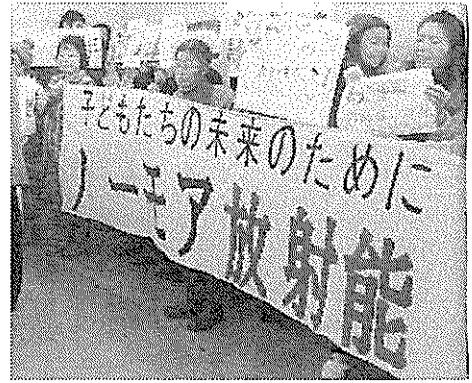 子どもたちの未来のために
ノーモア放射能